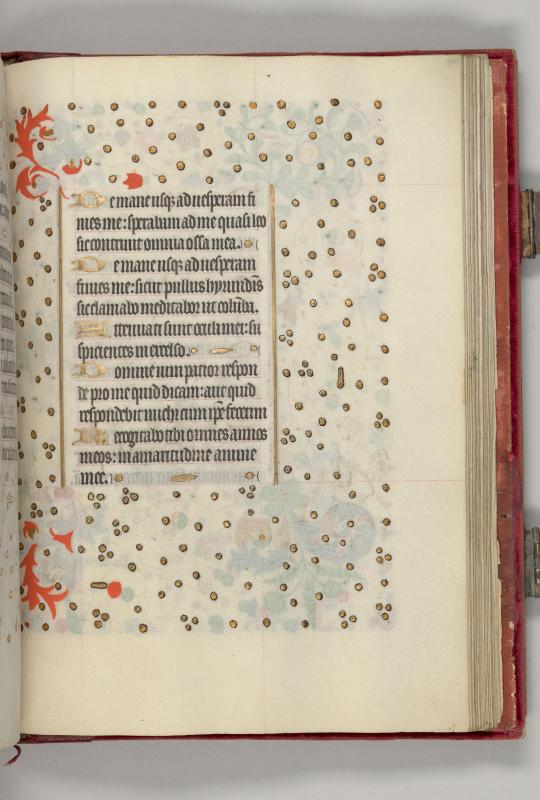 De mane usq3 ad uesperam fi
nies me: sperabam ad me quasi leo
sic contriuit omnia ossa mea.
De mane usq3 ad uesperam
finies me: sicut pullus hyrundis
sic clamabo meditabor ut coluba.
Attenuati sunt oculi mei: su
spicientes in excelso.
Domine uim patior respon
de pro me quid dicam: aut quid
respondebit michi cum ip̅e fecerim
Recogitabo tibi omnes annos
meos: in amaritudine anime
mee.